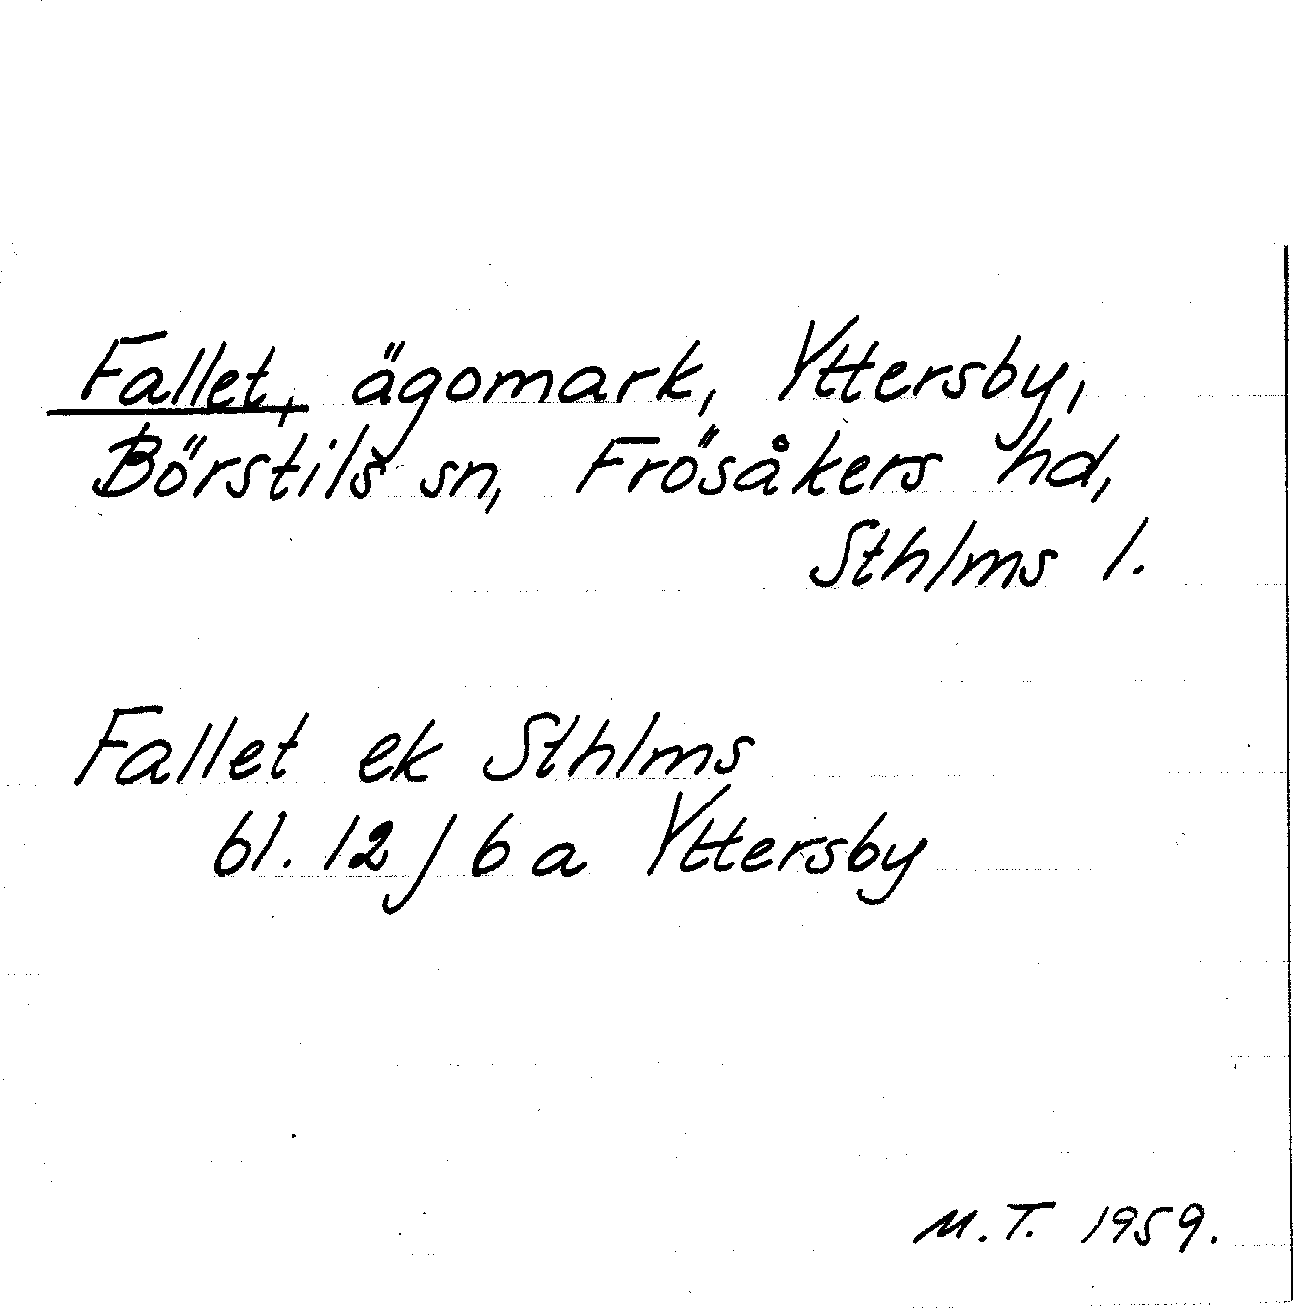 Fallet, ägomark, Yttersby,
Börstils sn, Frösåkers hd,
Sthlms l.
Fallet ek Sthlms
bl. 12 j b a Yttersby
M.T. 1959.